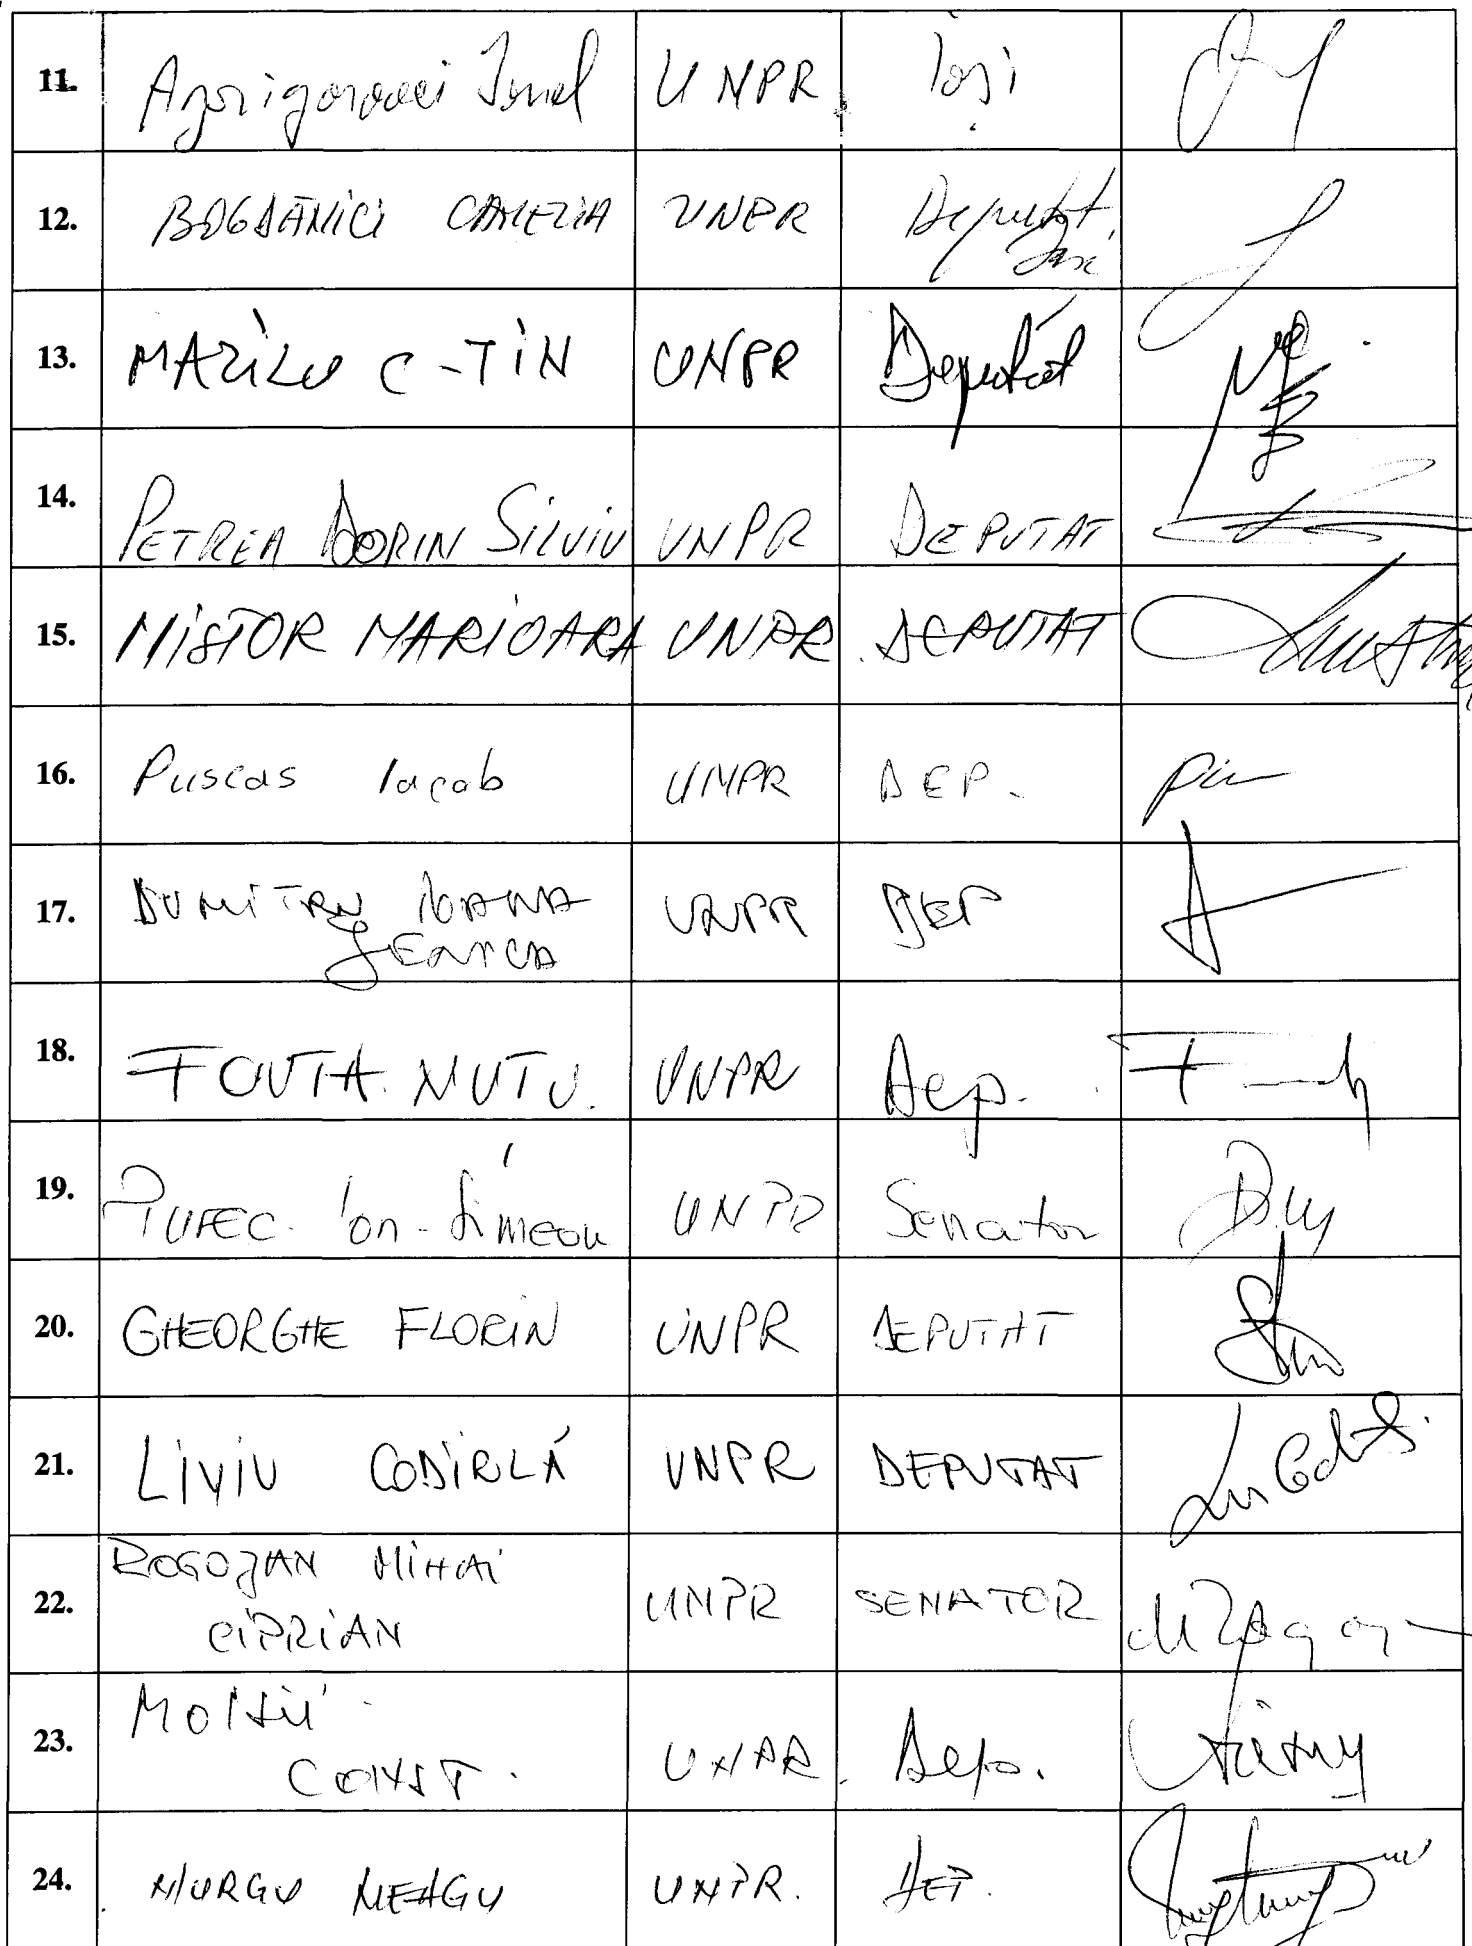 11. Agrigoroaei Ionel UNPR Iași
12. BOGDĂNICI CAMELIA UNPR Deputat,
Iași
13. MAZILU C-TIN UNPR Deputat
14. PETREA DORIN SILVIU UNPR DEPUTAT
15. NISTOR MARIOARA UNPR. DEPUTAT
16. Puscas Iacob UNPR DEP.
17. DUMITRU IOANA UNPR DEP
JEANICA
18. FOUTA. NUTU. UNPR Dep.
19. Ion-Simeon UNPR Senator
20. GHEORGHE FLORIN UNPR DEPUTAT
21. LIVIU CODÎRLĂ UNPR DEPUTAT
22. ROGOJAN MIHAI UNPR SENATOR
CIPRIAN
23. MOISII UNPR. Dep.
CONST.
24. MURGU NEAGU UNPR. DEP.